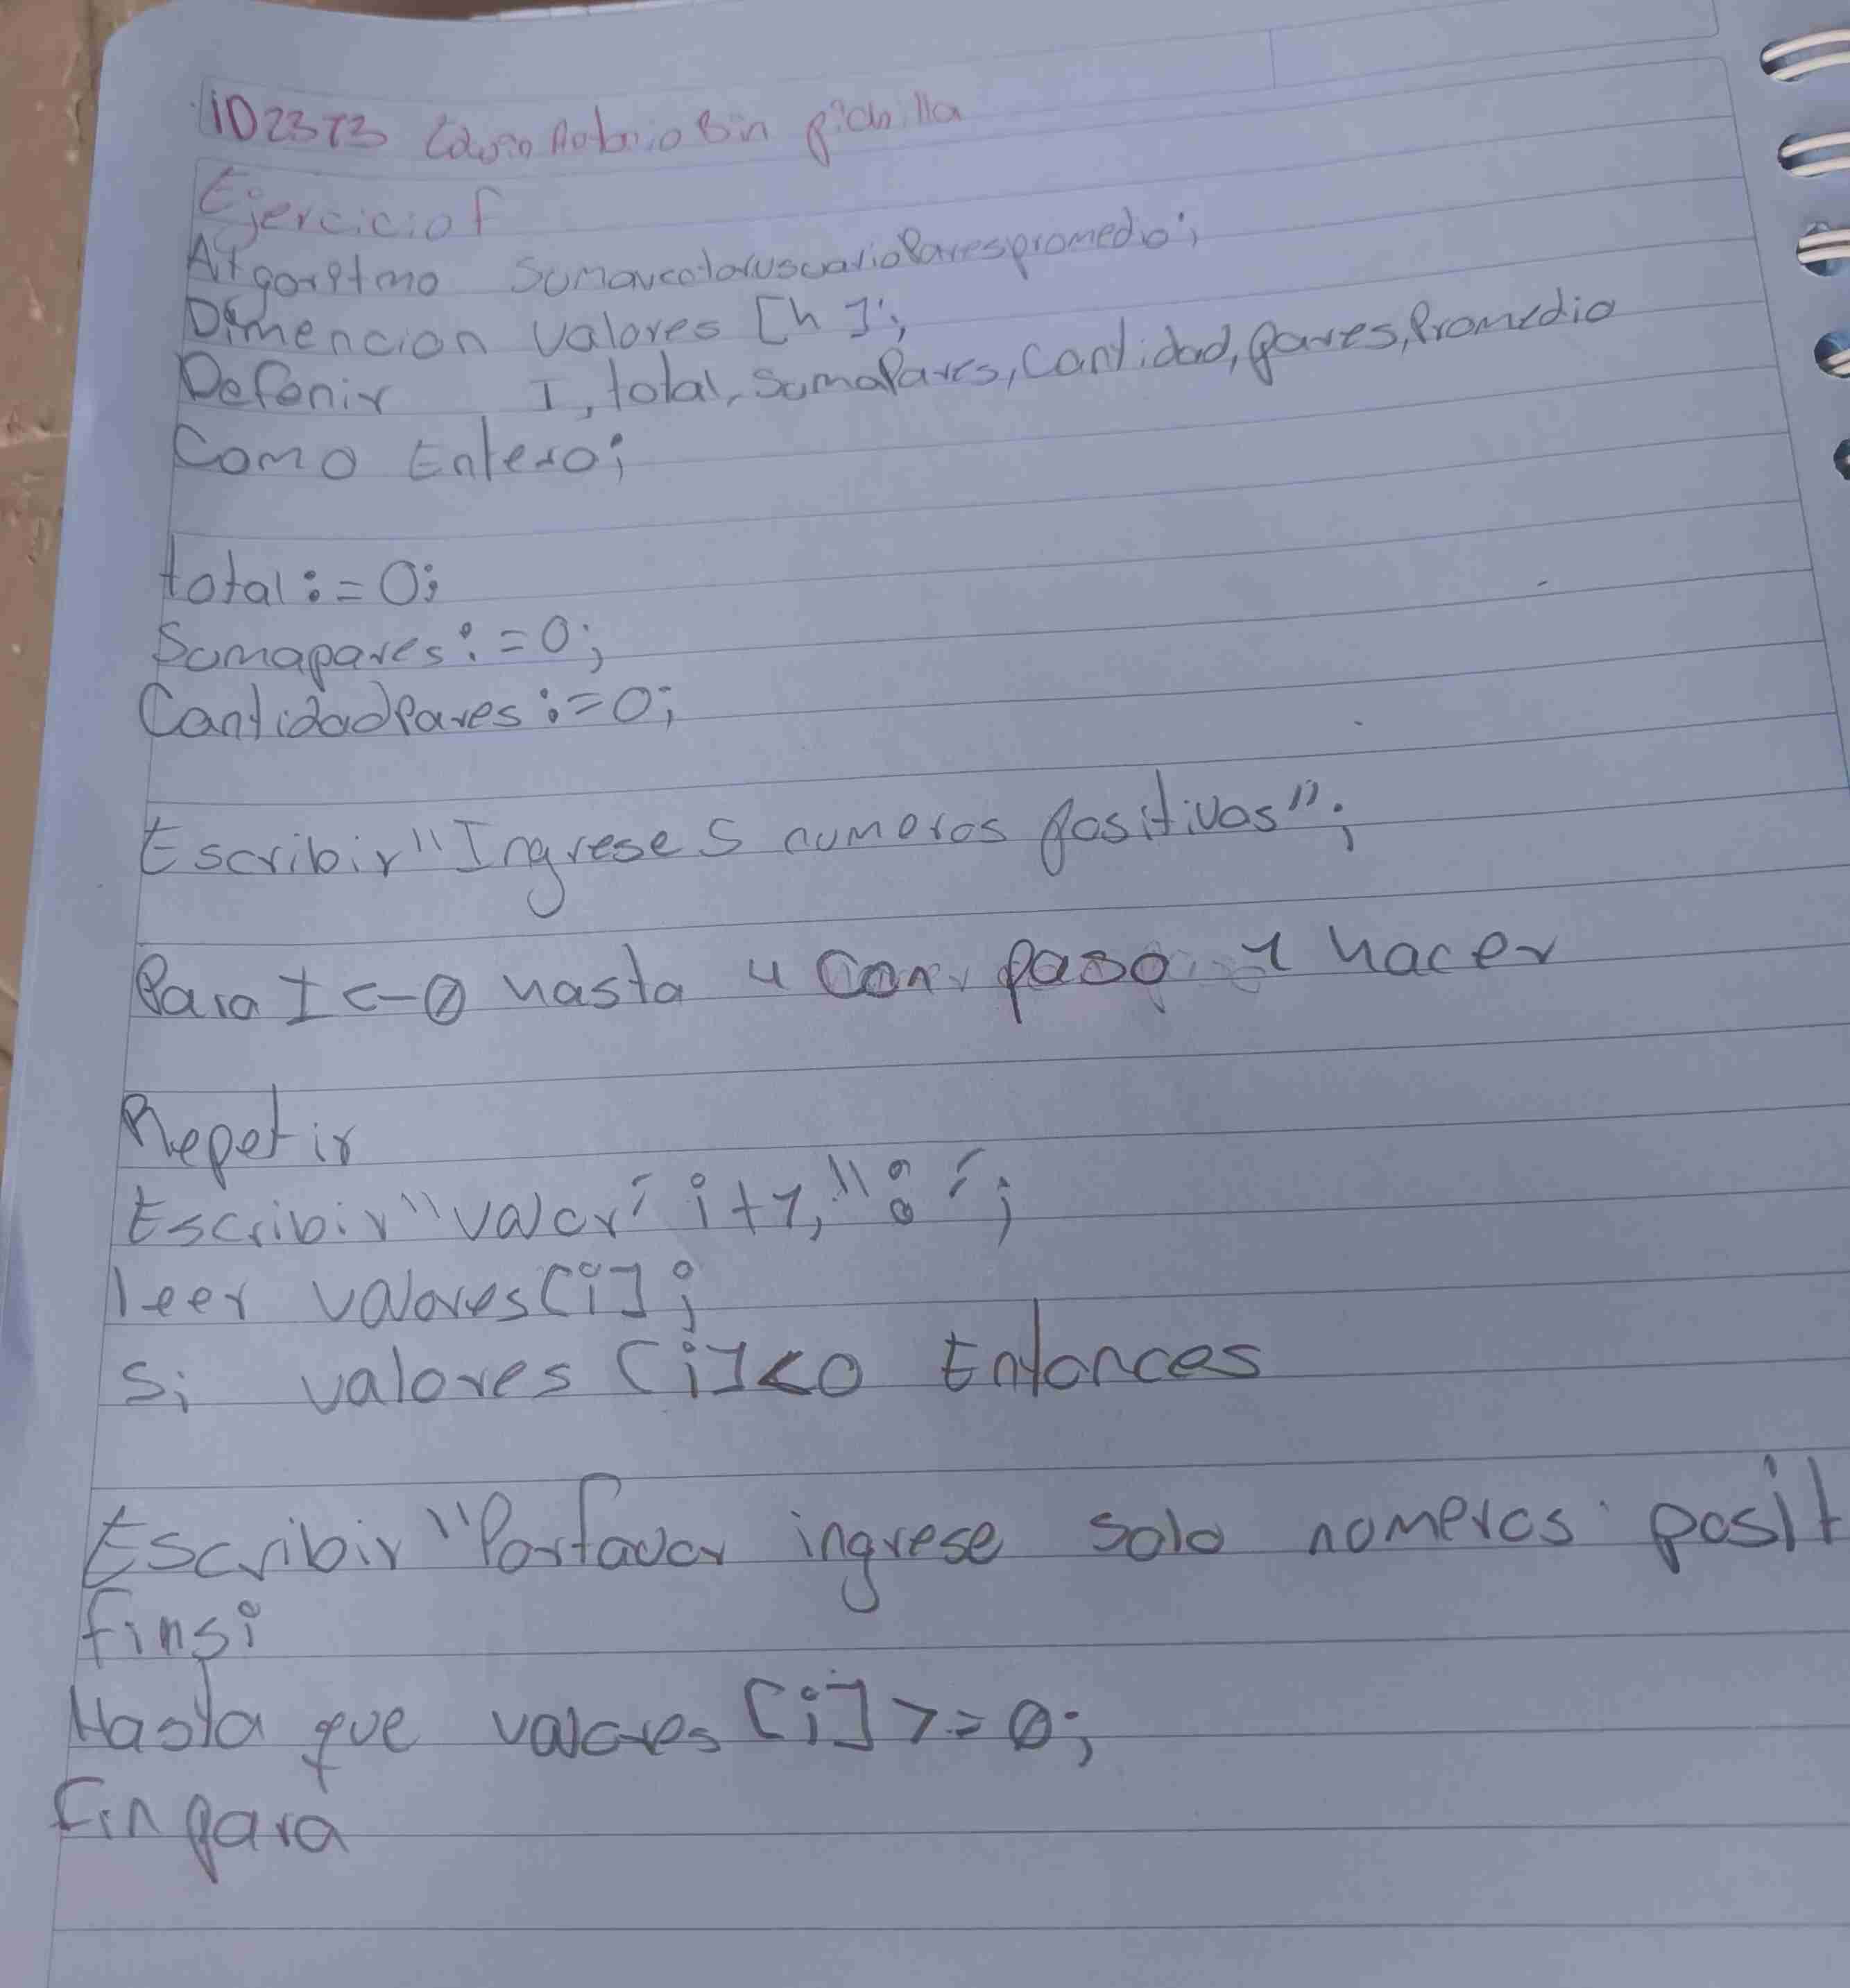 ID2373
Ejercicio f
Algoritmo
Dimencion valores [h];
Defenir I, total, sumaPares, Cantidad, pares, Promedio
Como Entero;
total:=0;
Sumapares:=0;
CantidadPares:=0;
Escribir "Ingrese 5 numeros positivos";
Para I <-0 hasta 4 Con paso 1 hacer
Repetir
Escribir "valor" i+1, ":";
leer valores[i];
Si valores [i]<0 Entonces
Escribir "Porfavor ingrese solo numeros posit
finsi
Hasta que valores [i] >=0;
Finpara